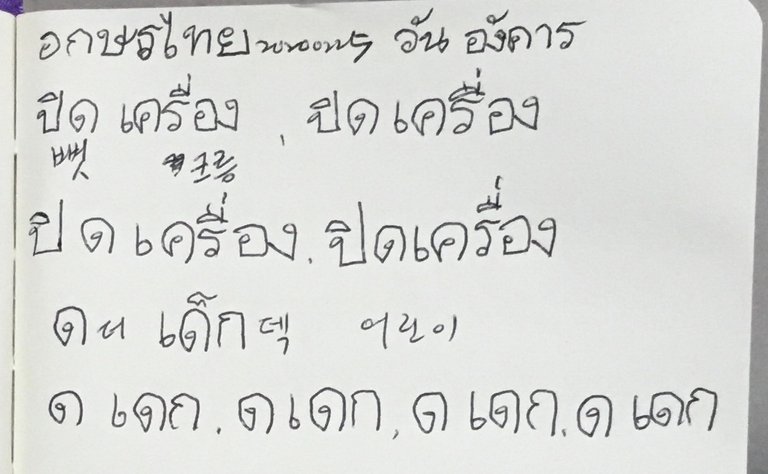 อกษรไทย วัน อังคาร
ปิด เครื่อง , ปิดเครื่อง
삣 크릉
ปิด เครื่อง. ปิดเครื่อง
ด 더 เด็ก 덱 어린이
ด เดก. ด เดก, ด เดก. ด เดก